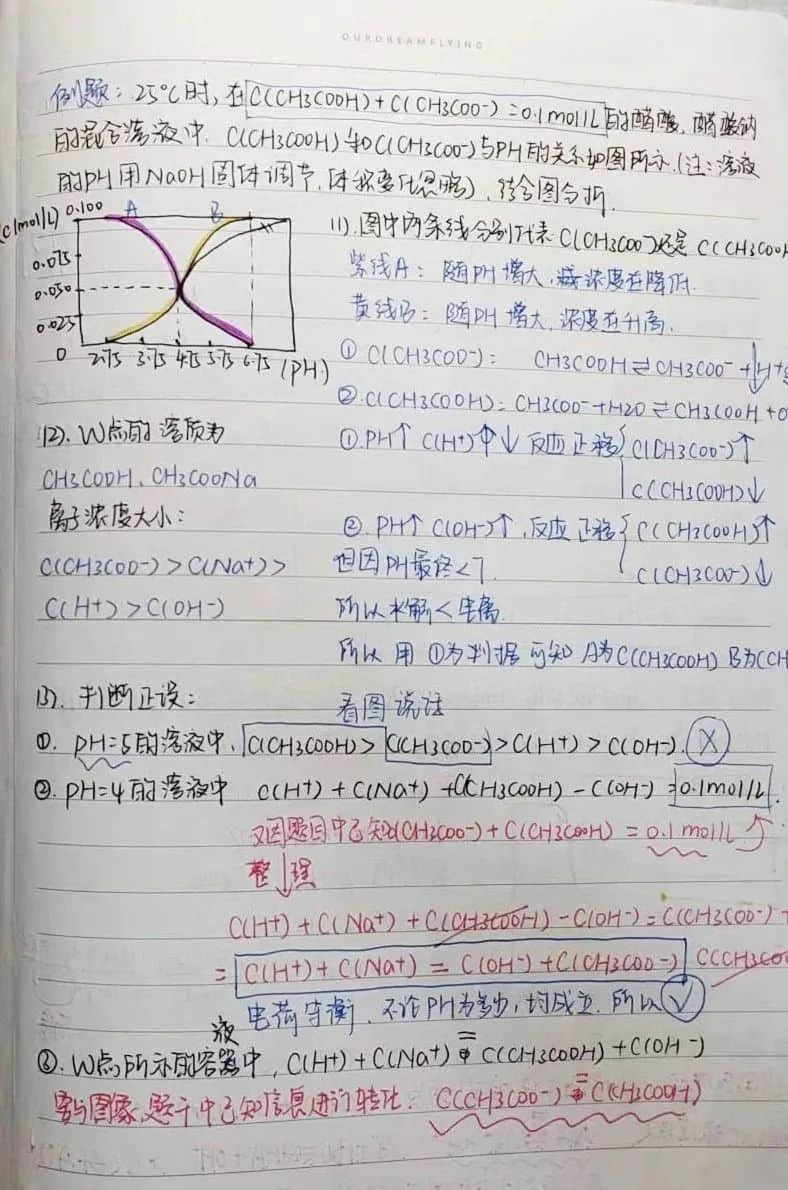 OURDREAMFLYING
例题: 25℃时, 在C(CH3COOH)+C(CH3COO-)=0.1mol/L的醋酸、醋酸钠
的混合溶液中. C(CH3COOH)和C(CH3COO-)与PH的关系如图所示.(注:溶液
的PH用NaOH固体调节,体积变化忽略), 结合图分析.
C(mol/L) 0.100 A B
0.075
0.050
0.025
0 2.75 3.75 4.75 5.75 6.75 (PH)
(1).图中两条线分别代表C(CH3COO-)还是C(CH3COOH
紫线A: 随PH增大, 浓度在降低.
黄线B: 随PH增大, 浓度在升高.
① C(CH3COO-): CH3COOH⇌CH3COO-+H+
②.C(CH3COOH): CH3COO-+H2O⇌CH3COOH+O
(2). W点的溶质为
CH3COOH、CH3COONa
离子浓度大小:
C(CH3COO-)>C(Na+)>
C(H+)>C(OH-)
①.PH↑ C(H+)↓ 反应正移 C(CH3COO-)↑
C(CH3COOH)↓
②.PH↑ C(OH-)↑,反应正移 C(CH3COOH)↑
C(CH3COO-)↓
但因PH最终<7.
所以水解<电离.
所以用①为判据可知A为C(CH3COOH) B为C(CH
(3). 判断正误:
看图说话
①. PH=5的溶液中, C(CH3COOH)>C(CH3COO-)>C(H+)>C(OH-). X
②. PH=4的溶液中 C(H+)+C(Na+)+C(CH3COOH)-C(OH-)=0.1mol/L.
又因题目中已知C(CH3COO-)+C(CH3COOH)=0.1mol/L
整理
C(H+)+C(Na+)+C(CH3COOH)-C(OH-)=C(CH3COO-)+
= C(H+)+C(Na+)=C(OH-)+C(CH3COO-) C(CH3COO
电荷守衡, 不论PH为多少,均成立. 所以√
③. W点所示的溶液中, C(H+)+C(Na+)=C(CH3COOH)+C(OH-)
要与图象、题干中已知信息进行转化. C(CH3COO-)=C(CH3COOH)